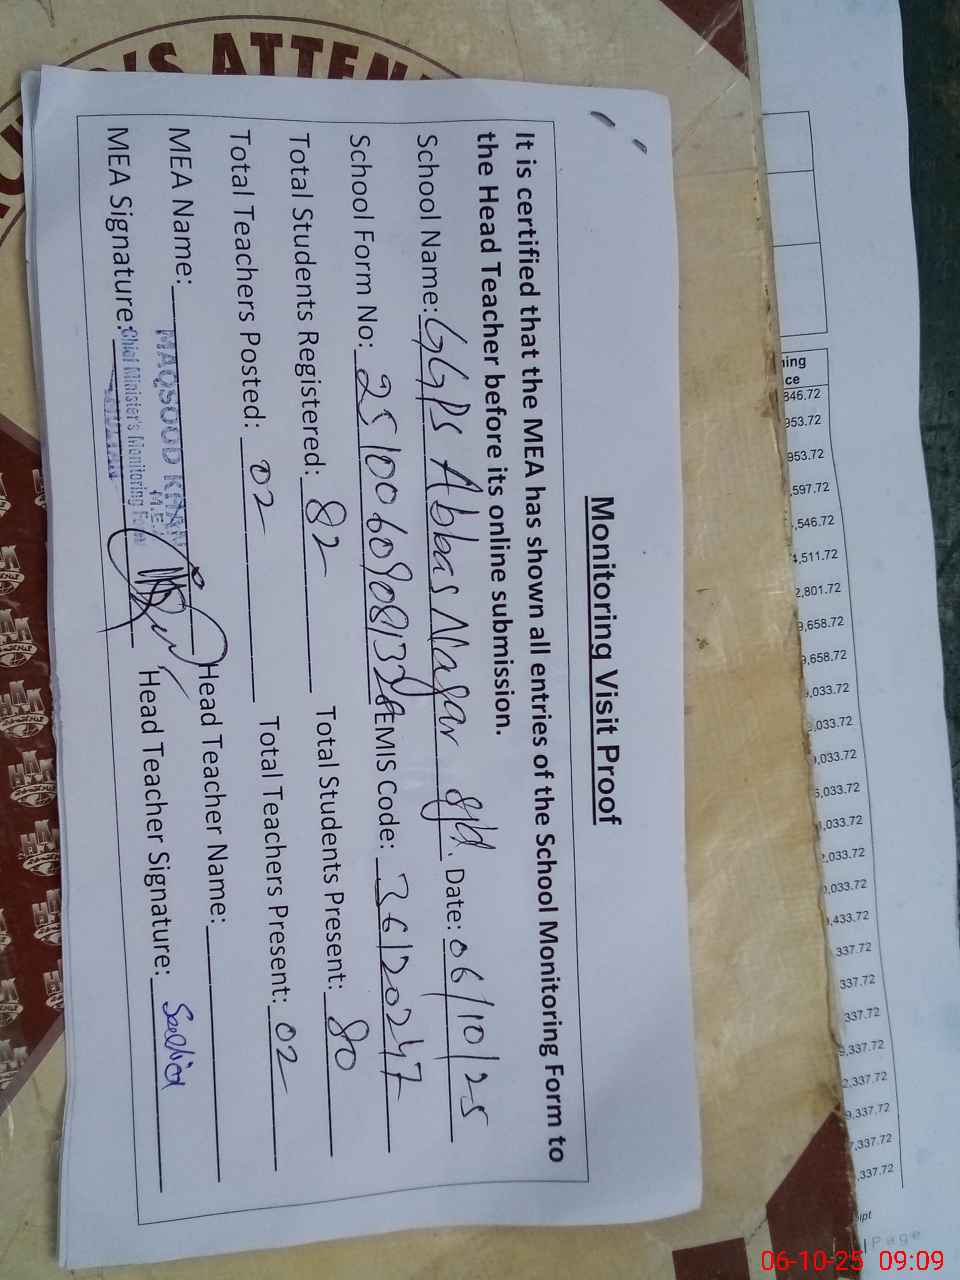 'S ATTEN
Monitoring Visit Proof
It is certified that the MEA has shown all entries of the School Monitoring Form to
the Head Teacher before its online submission.
School Name: GGPS Abbas Nagar Date: 06/10/25
School Form No: EMIS Code: 36120247
Total Students Registered: 82 Total Students Present: 80
Total Teachers Posted: 02 Total Teachers Present: 02
MEA Name: MAQSOOD KHAN Head Teacher Name:
M.E.A
MEA Signature: Chief Minister's Monitoring Force Head Teacher Signature: Sadia
ning
ce
346.72
953.72
953.72
,597.72
,546.72
4,511.72
2,801.72
9,658.72
9,658.72
,033.72
,033.72
,033.72
5,033.72
,033.72
2,033.72
,033.72
,433.72
337.72
337.72
337.72
9,337.72
2,337.72
9,337.72
7,337.72
,337.72
ipt
| Page
06-10-25 09:09